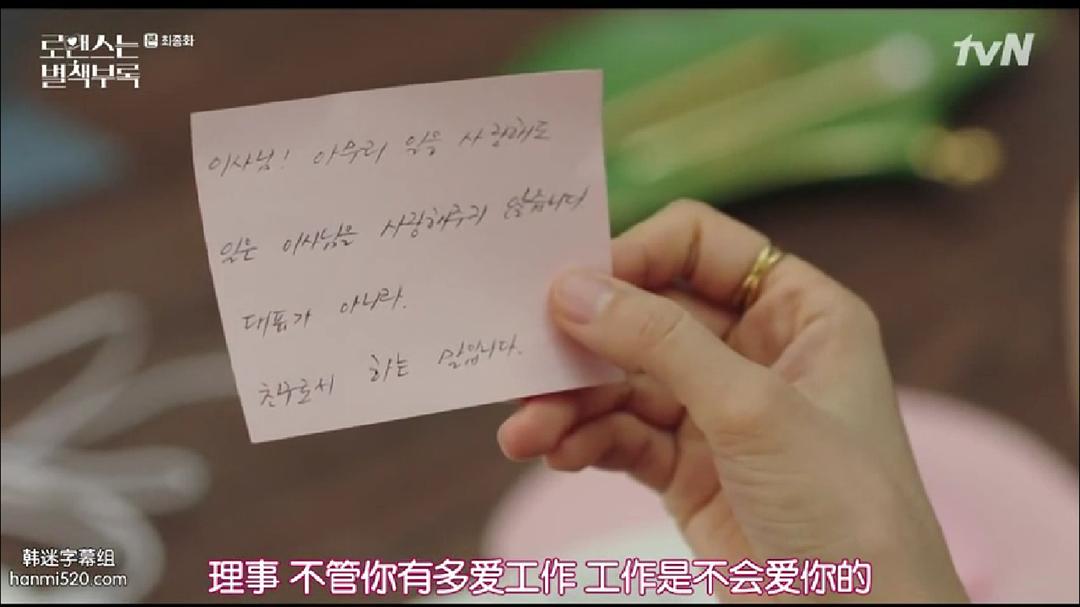 로맨스는
별책부록
본 최종화
tvN
이사님! 아무리 일을 사랑해도
일은 이사님을 사랑해주지 않습니다
대표가 아니라.
친구로서 하는 말입니다.
韩迷字幕组
hanmi520.com
理事 不管你有多爱工作 工作是不会爱你的